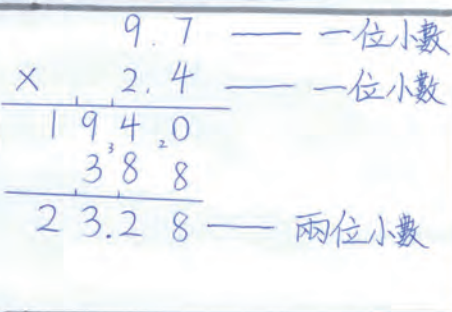 9.7 —— 一位小數
× 2.4 —— 一位小數
1940
388
23.28 —— 兩位小數